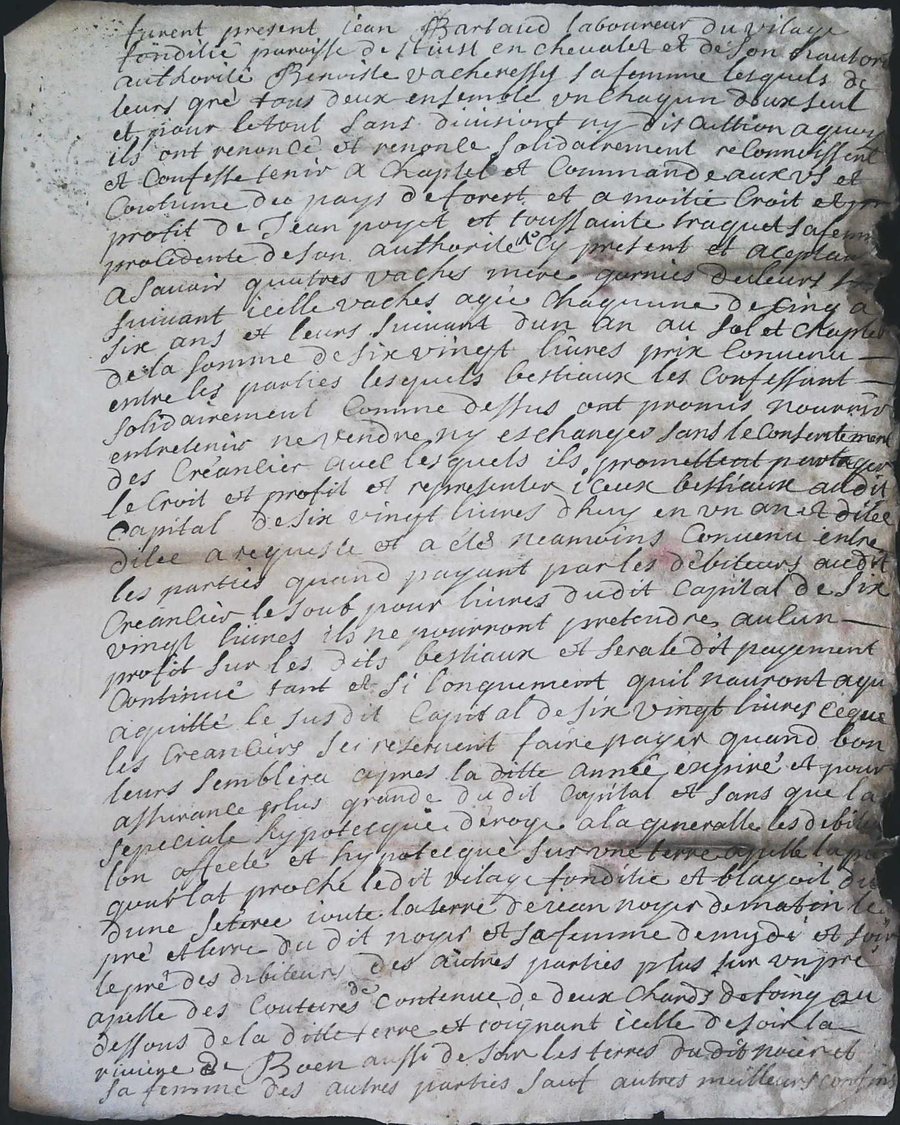 furent present iean Barlaud laboureur du vilage
fondilie paroisse de St iust en chevalet et de son
authorité Benoiste vacheresse sa femme lesquels de
leurs gré tous deux ensemble un chaqun deux seul
et pour le tout sans division ny discution a quoy
ils ont renoncé et renonce solidairement reconnoissent
et Confesse tenir a Chaptel et Commande aux us et
Coutume du pays de forest et a moitié Croit et
profit de Jean poyet et toussainte traquet sa femme
procedente de son authorité Cy present et aceptant
a savoir quatres vaches mere garnies de leurs
suivant icelle vaches agée Chaqunne de Cinq a
six ans et leurs suivant dun an au sol et Chaptel
de la somme de six vingt livres prix Convenu
entre les parties lesquels bestiaux les Confessant
solidairement Comme dessus ont promis nourrir
entretenir ne vendre ny eschanger sans le Consentement
des Créancier avec lesquels ils promettent partager
le Croit et profit et representer iceux bestiaux audit
Capital de six vingt livres dhuy en un an et
dilec a requeste et a etés neamoins Convenu entre
les parties quand payant par les débiteurs audit
Créancier le soub pour livres dudit Capital de six
vingt livres ils ne pourront pretendre aucun
profit sur les dits bestiaux et sera ledit payement
Continué tant et si longuement quil nauront
aquitté le susdit Capital de six vingt livres ce que
les Creanciers sei reservent faire payer quand bon
leurs semblera apres la ditte année expiré et pour
assurance plus grande dudit Capital et sans que la
sepeciale hypotecque déroge a la generalle les debiteurs
lon affecté et hypotecqué sur une terre apellé
proche ledit vilage fondilie et
dune seteree ioute la terre de iean noyer de matin le
pré et terre du dit noyer et sa femme de mydi et soir
le pré des debiteurs des autres parties plus sur un pré
apelle des Coutures de Contenue de deux Chards de foing au
dessous de la ditte terre et ioignant icelle de soir la
riviere de Boen aussi de soir les terres du dit noier et
sa femme des autres parties sauf autres meilleurs confins